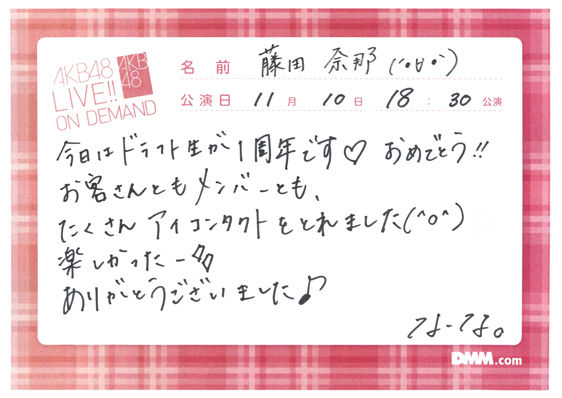 AKB48
LIVE!!
ON DEMAND
AKB
48
名 前 藤田 奈那 (*•∀•*)
公演日 11月 10日 18:30 公演
今日はドラフト生が1周年です♡ おめでとう!!
お客さんともメンバーとも、
たくさん アイコンタクトをとれました(^o^)
楽しかったー
ありがとうございました♪
なーな。
DMM.com